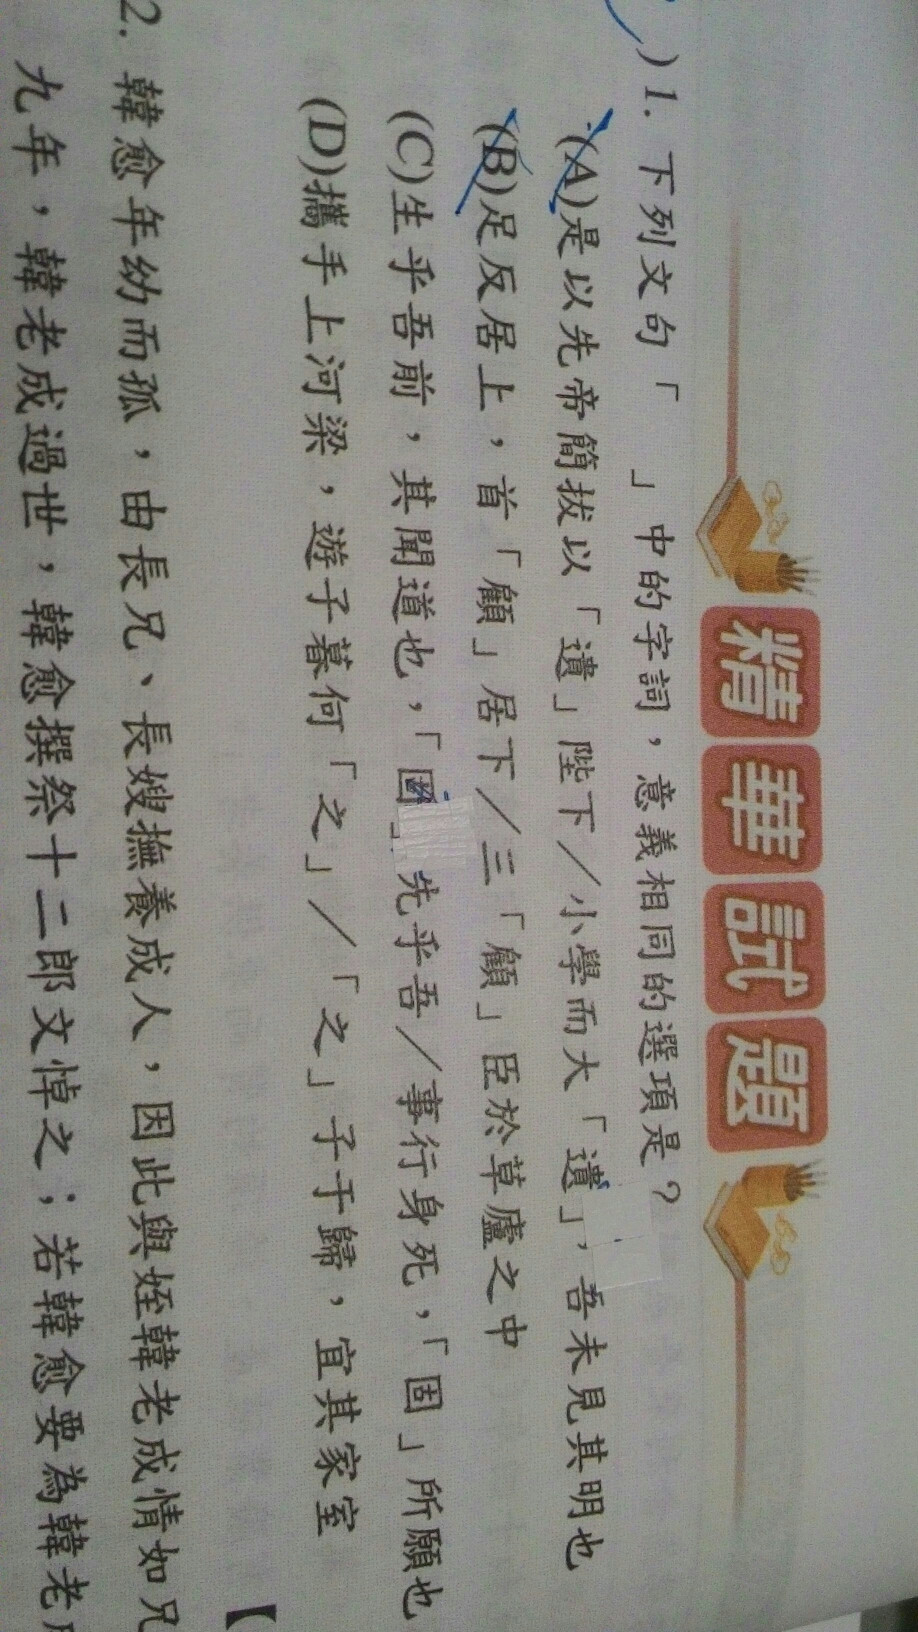 精華試題
)1. 下列文句「　」中的字詞，意義相同的選項是？
(A)是以先帝簡拔以「遺」陛下／小學而大「遺」，吾未見其明也
(B)足反居上，首「顧」居下／三「顧」臣於草廬之中
(C)生乎吾前，其聞道也，「固」先乎吾／事行身死，「固」所願也
(D)攜手上河梁，遊子暮何「之」／「之」子于歸，宜其家室
【
2. 韓愈年幼而孤，由長兄、長嫂撫養成人，因此與姪韓老成情如兄
九年，韓老成過世，韓愈撰祭十二郎文悼之；若韓愈要為韓老